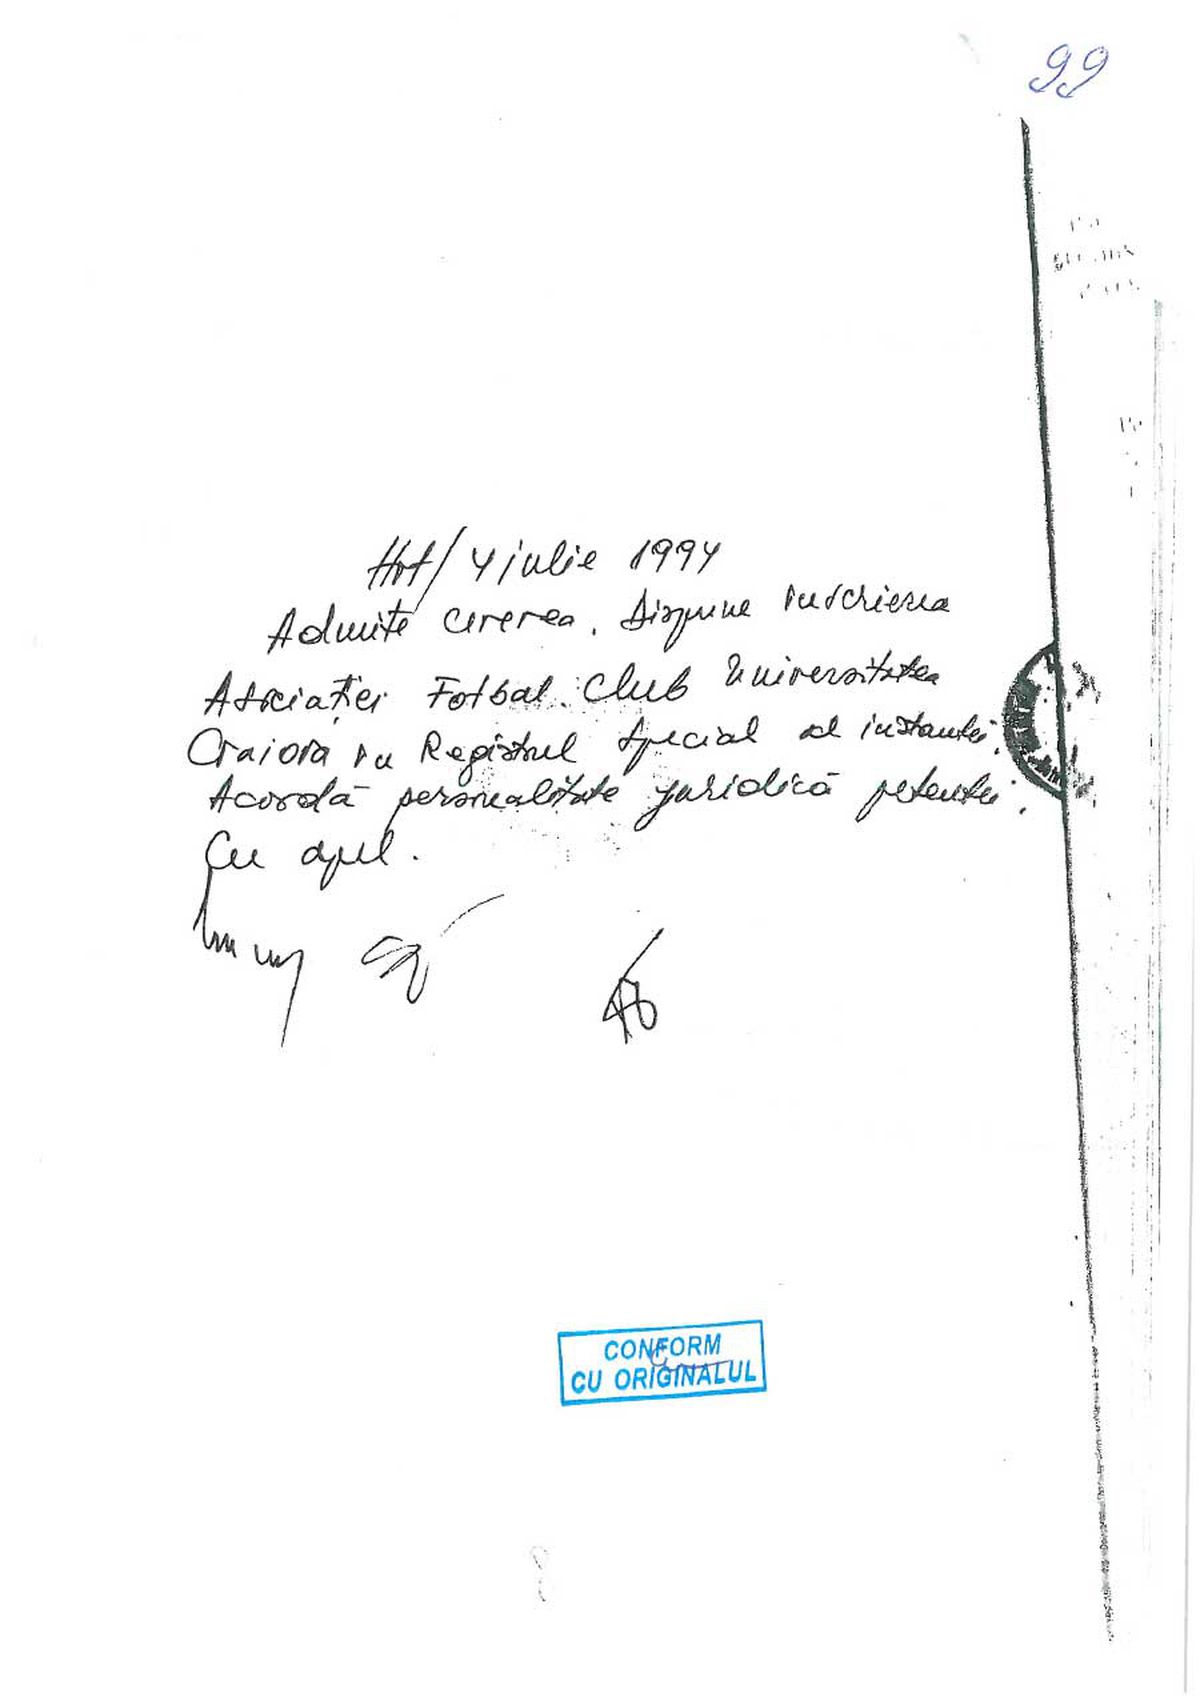 99
Hot/ 4 iulie 1994
Admite cererea. Dispune înscrierea
Asociației Fotbal Club Universitatea
Craiova în Registrul Special al instanței.
Acordă personalitate juridică petentei.
Cu apel.
CONFORM
CU ORIGINALUL
8